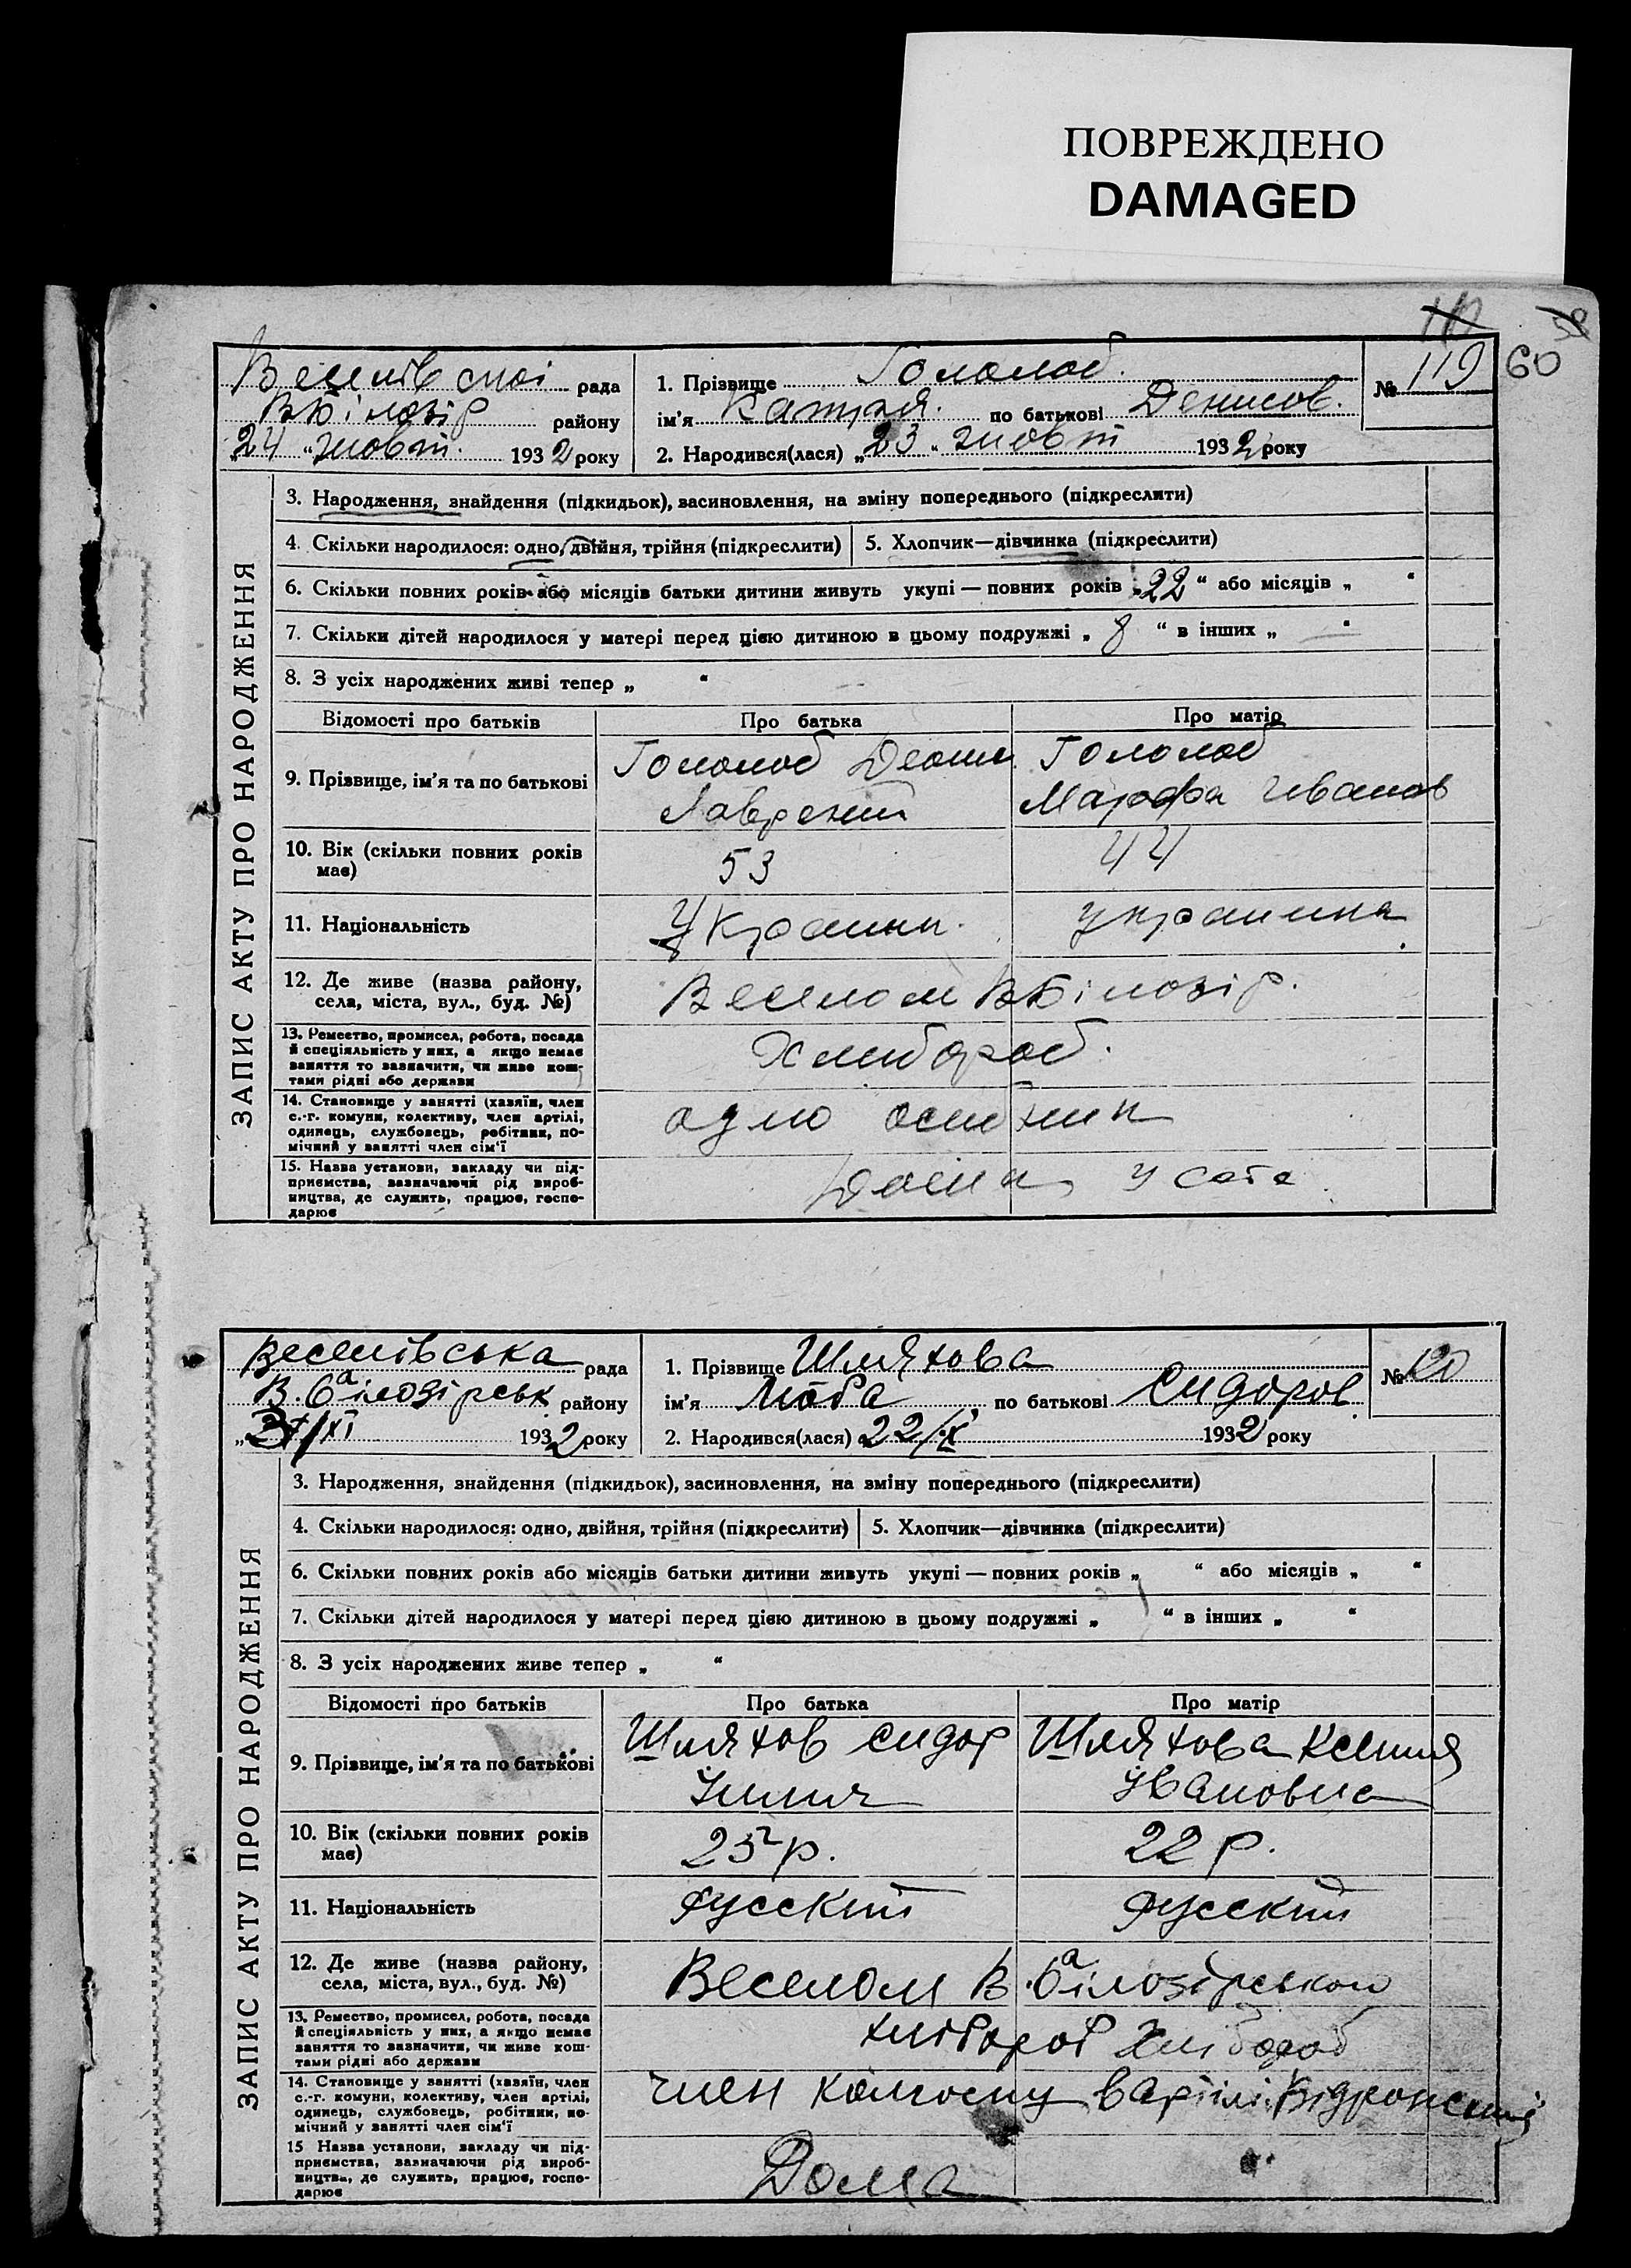 ПОВРЕЖДЕНО
DAMAGED
60
рада
ВБілозір району
„24 “ жовт. 1932 року
1. Прізвище Гололоб.
ім’я Катря. по батькові Денисов.
2. Народився(лася) „23 “ жовт 1932 року
№ 119
ЗАПИС АКТУ ПРО НАРОДЖЕННЯ
3. Народження, знайдення (підкидьок), засиновлення, на зміну попереднього (підкреслити)
4. Скільки народилося: одно, двійня, трійня (підкреслити)
5. Хлопчик—дівчинка (підкреслити)
6. Скільки повних років або місяців батьки дитини живуть укупі — повних років „22 “ або місяців „ “
7. Скільки дітей народилося у матері перед цією дитиною в цьому подружжі „ 8 “ в інших „ — “
8. З усіх народжених живі тепер „ “
Відомості про батьків
Про батька
Про матір
9. Прізвище, ім’я та по батькові
Гололоб
Лаврентий
Гололоб
Марфа Иванов
10. Вік (скільки повних років
має)
53
44
11. Національність
Украинн.
украинка
12. Де живе (назва району,
села, міста, вул., буд. №)
Веселом ВБілозір.
13. Ремество, промисел, робота, посада
й спеціяльність у них, а якщо немає
заняття то зазначити, чи живе кош-
тами рідні або держави
Хлибороб.
14. Становище у занятті (хазяїн, член
с.-г. комуни, колективу, член артілі,
одинець, службовець, робітник, по-
мічний у занятті член сім’ї
одно осибник
15. Назва установи, закладу чи під-
приємства, зазначаючи рід вироб-
ництва, де служить, працює, госпо-
дарює
у себе
Веселівська рада
В. Білозірськ району
1932 року
1. Прізвище Шляхова
ім’я Люба по батькові Сидоров.
2. Народився(лася) 22/X 1932 року
№ 120
ЗАПИС АКТУ ПРО НАРОДЖЕННЯ
3. Народження, знайдення (підкидьок), засиновлення, на зміну попереднього (підкреслити)
4. Скільки народилося: одно, двійня, трійня (підкреслити)
5. Хлопчик—дівчинка (підкреслити)
6. Скільки повних років або місяців батьки дитини живуть укупі — повних років „ “ або місяців „ “
7. Скільки дітей народилося у матері перед цією дитиною в цьому подружжі „ “ в інших „ “
8. З усіх народжених живе тепер „ “
Відомості про батьків
Про батька
Про матір
9. Прізвище, ім’я та по батькові
Шляхов Сидор
Шляхова Ксения
Ивановна
10. Вік (скільки повних років
має)
25 р.
22 р.
11. Національність
русский
русский
12. Де живе (назва району,
села, міста, вул., буд. №)
Веселом В. Білозірськом
13. Ремество, промисел, робота, посада
й спеціяльність у них, а якщо немає
заняття то зазначити, чи живе кош-
тами рідні або держави
хлібороб Хлібороб
14. Становище у занятті (хазяїн, член
с.-г. комуни, колективу, член артілі,
одинець, службовець, робітник, по-
мічний у занятті член сім’ї
член колгоспу в артілі
15 Назва установи, закладу чи під-
приємства, зазначаючи рід вироб-
ництва, де служить, працює, госпо-
дарює
Дома